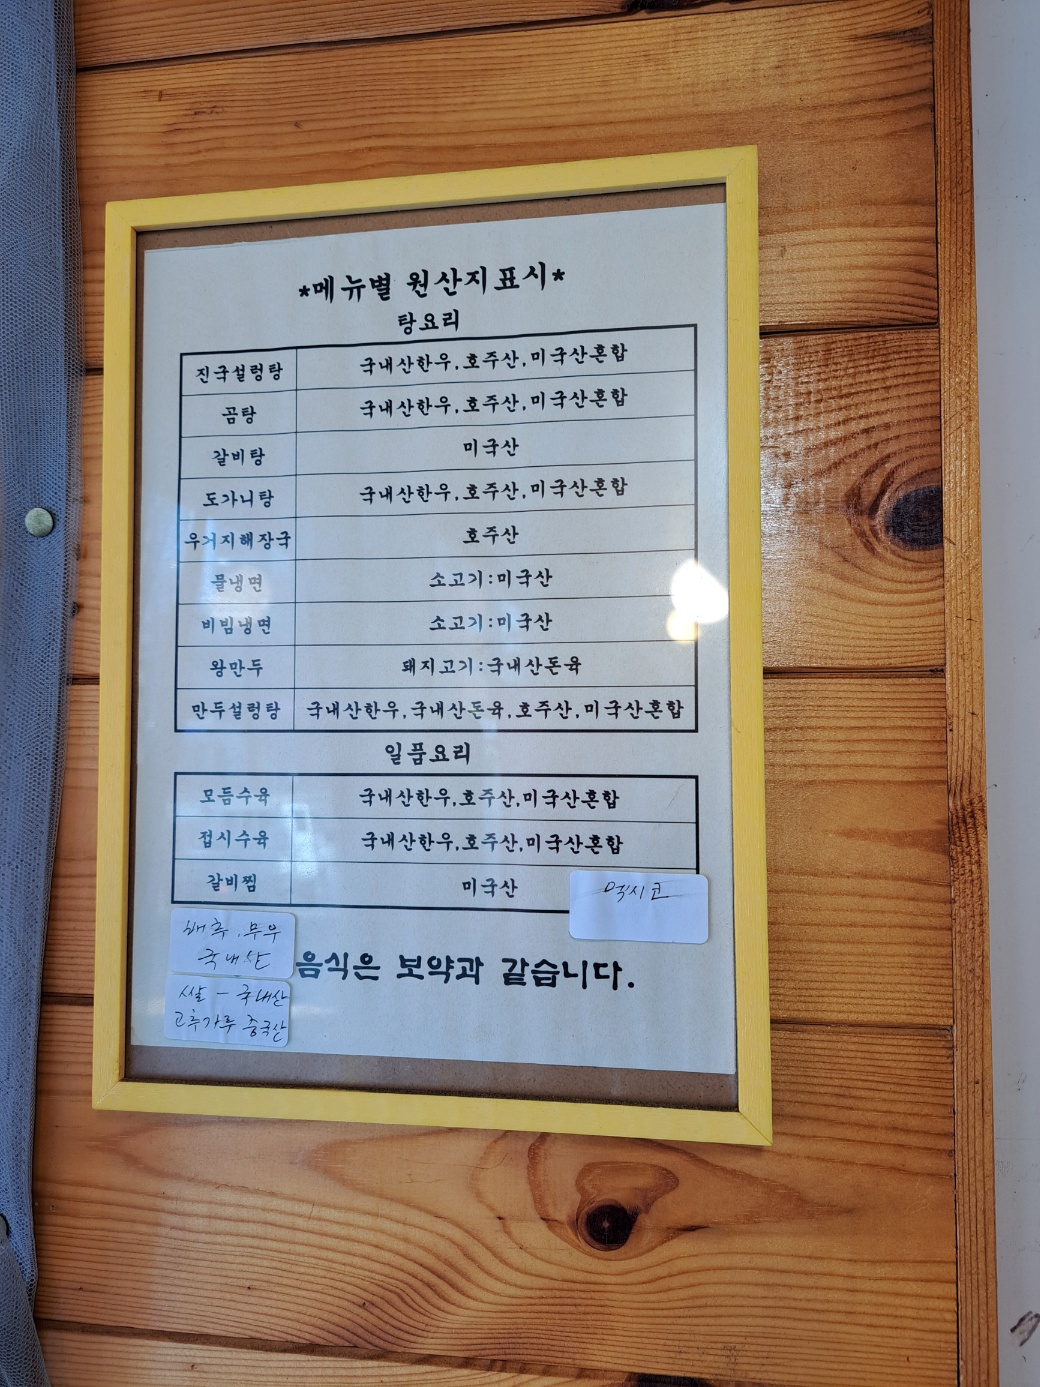 *메뉴별 원산지표시*
탕요리
진국설렁탕 국내산한우,호주산,미국산혼합
곰탕 국내산한우,호주산,미국산혼합
갈비탕 미국산
도가니탕 국내산한우,호주산,미국산혼합
우거지해장국 호주산
물냉면 소고기:미국산
비빔냉면 소고기:미국산
왕만두 돼지고기:국내산돈육
만두설렁탕 국내산한우,국내산돈육,호주산,미국산혼합
일품요리
모듬수육 국내산한우,호주산,미국산혼합
접시수육 국내산한우,호주산,미국산혼합
갈비찜 미국산 멕시코
배추.무우
국내산
음식은 보약과 같습니다.
쌀 - 국내산
고추가루 중국산